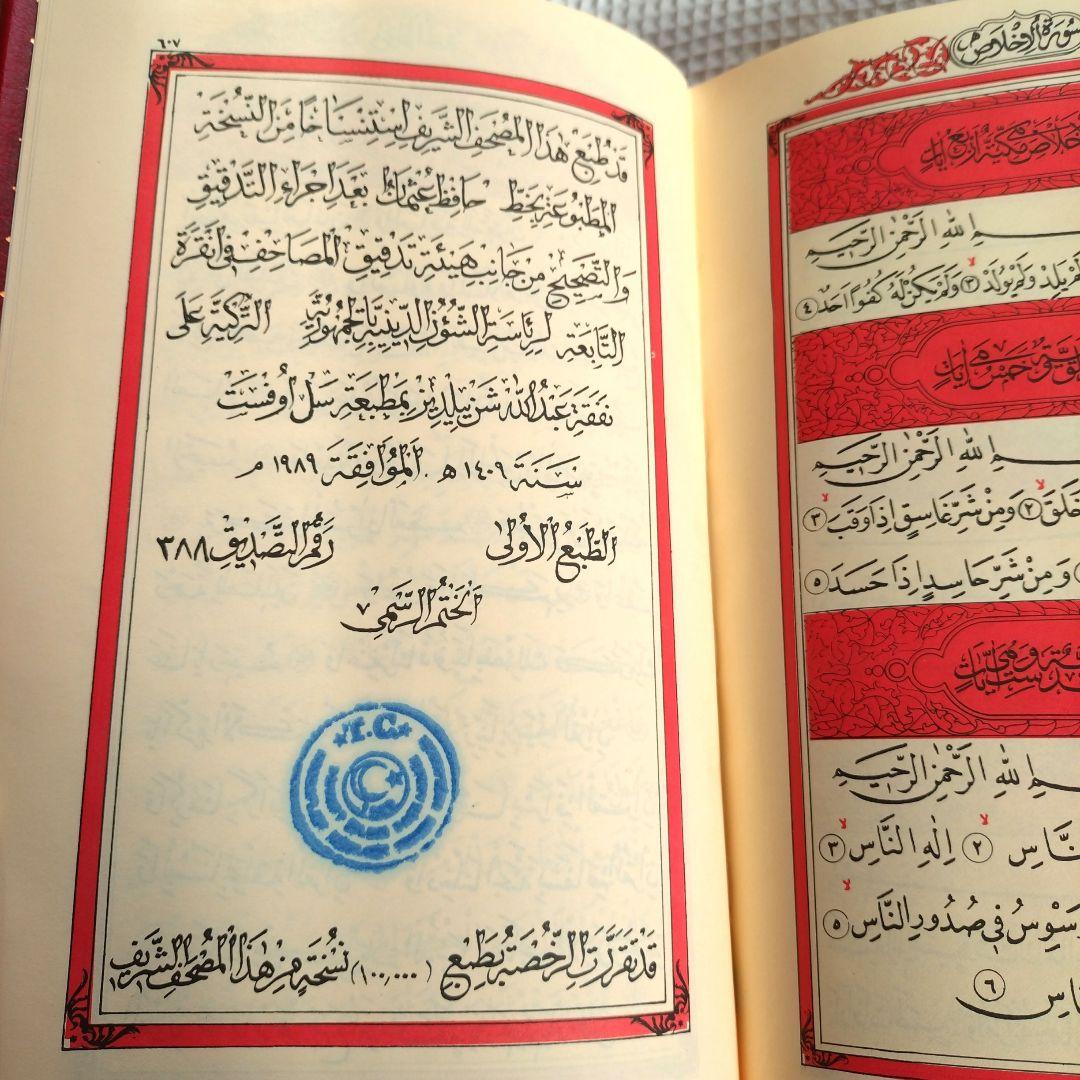 ٦٠٧
قَدْ طُبِعَ هٰذَا الْمُصْحَفُ الشَّرِيفُ اِسْتِنْسَاخًا مِنَ النُّسْخَةِ
الْمَطْبُوعَةِ بِخَطِّ حَافِظْ عُثْمَانْ بَعْدَ اِجْرَاءِ التَّدْقِيقِ
وَالتَّصْحِيحِ مِنْ جَانِبِ هَيْئَةِ تَدْقِيقِ الْمَصَاحِفِ فِى اَنْقَرَةَ
التَّابِعَةِ لِرِئَاسَةِ الشُّؤُنِ الدِّينِيَّةِ بِالْجُمْهُورِيَّةِ التُّرْكِيَّةِ عَلَى
نَفَقَةِ عَبْدُ اللّٰه شَنْ يِيلْدِيزْ بِمَطْبَعَةِ سَلْ اُوفْسَتْ
سَنَةَ ١٤٠٩ هـ . الْمُوَافِقَةَ ١٩٨٩ م
الطَّبْعُ الْاُولٰى رَقْمُ التَّصْدِيقِ ٣٨٨
الْخَتْمُ الرَّسْمِى
T.C.
قَدْ تَقَرَّرَتِ الرُّخْصَةُ بِطَبْعِ (١٠٠,٠٠٠) نُسْخَةٍ مِنْ هٰذَا الْمُصْحَفِ الشَّرِيفِ
سُورَةُ الْاِخْلَاصِ
مَكِّيَّةٌ اَرْبَعُ اٰيَاتٍ
اللّٰهِ الرَّحْمٰنِ الرَّحِيمِ
لَمْ يَلِدْ وَلَمْ يُولَدْ ٣ وَلَمْ يَكُنْ لَهُ كُفُوًا اَحَدٌ ٤
خَمْسُ اٰيَاتٍ
اللّٰهِ الرَّحْمٰنِ الرَّحِيمِ
خَلَقَ ٢ وَمِنْ شَرِّ غَاسِقٍ اِذَا وَقَبَ ٣
وَمِنْ شَرِّ حَاسِدٍ اِذَا حَسَدَ ٥
اللّٰهِ الرَّحْمٰنِ الرَّحِيمِ
النَّاسِ ٢ اِلٰهِ النَّاسِ ٣
فِى صُدُورِ النَّاسِ ٥
٦